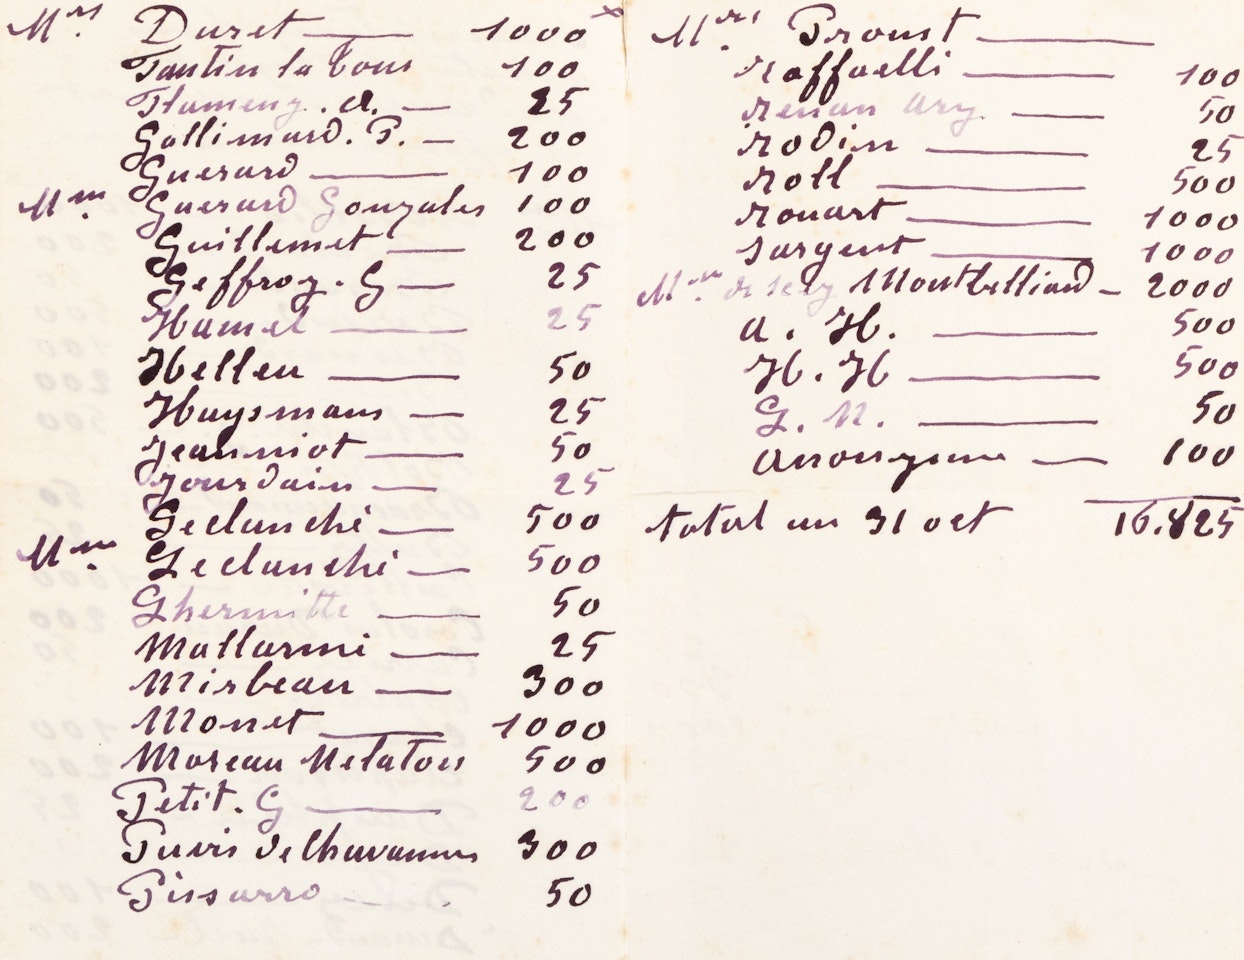 Mrs. Duret — 1000 x
Fantin la Tour 100
Flameng. A. — 25
Gallimard. P. — 200
Guerard — 100
Mme. Guerard Gonzales 100
Guillemet — 200
Geffroy. G — 25
Hamel — 25
Helleu — 50
Huysmans — 25
Jeanniot — 50
Jourdain — 25
Leclanché — 500
Mme. Leclanché — 500
Lhermitte — 50
Mallarmé — 25
Mirbeau — 300
Monet — 1000
Moreau Nelaton 500
Petit. G — 200
Puvis de Chavannes 300
Pissarro — 50
Mrs. Proust —
Raffaelli — 100
Renan Ary — 50
Rodin — 25
Roll — 500
Rouart — 1000
Sargent — 1000
Mme. de Scey Montbelliard — 2000
A. H. — 500
H. H — 500
G. N. — 50
Anonyme — 100
total au 31 oct 16.825